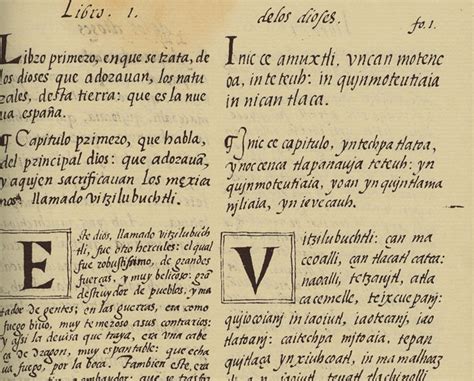 Libro. 1.
Libro primero, enque se trata, de
los dioses que adorauan, los natu
rales, desta tierra: que es la nue
ua españa.
¶ Capitulo primero, que habla,
del principal dios: que adorauã,
y aqujen sacrificauan los mexica
nos llamado Vitzilubuchtli.
Este dios, llamado vitzilubuch
tli, fue otro hercules: elqual
fue robustissimo, de grandes
fuercas, y muy belicoso: gran
destruydor de pueblos, y ma
tador de gentes; en las guerras, era como
fuego biuo, muy temeroso asus contrarios:
y asi la deuisa que traya, era vna cabe
ca de dragon, muy espantable: que echa
ua fuego, por la boca. Tambien este, era
delos dioses.
fo. 1.
Inic ce amuxtli, vncan moteneoa,
oa, in teteuh: in qujnmoteutiaia
in nican tlaca.
¶ Inic ce capitulo, yntechpa tlatoa,
ynoccenca tlapanauja teteuh: yn
qujnmoteutiaia, yoan yn qujntlama
njliaia, yn ievecauh.
Vitzilubuchtli: can ma
ceoalli, can tlacatl catca:
naoalli, tetzaujtl, atla
cacemelle, teixcuepanj:
qujiocoianj in iaoiutl, iaotecanj, iao
tlatoanj: caitechpa mjtoaia, tepan
qujtlaça yn xiuhcoatl, in ma malhoaz